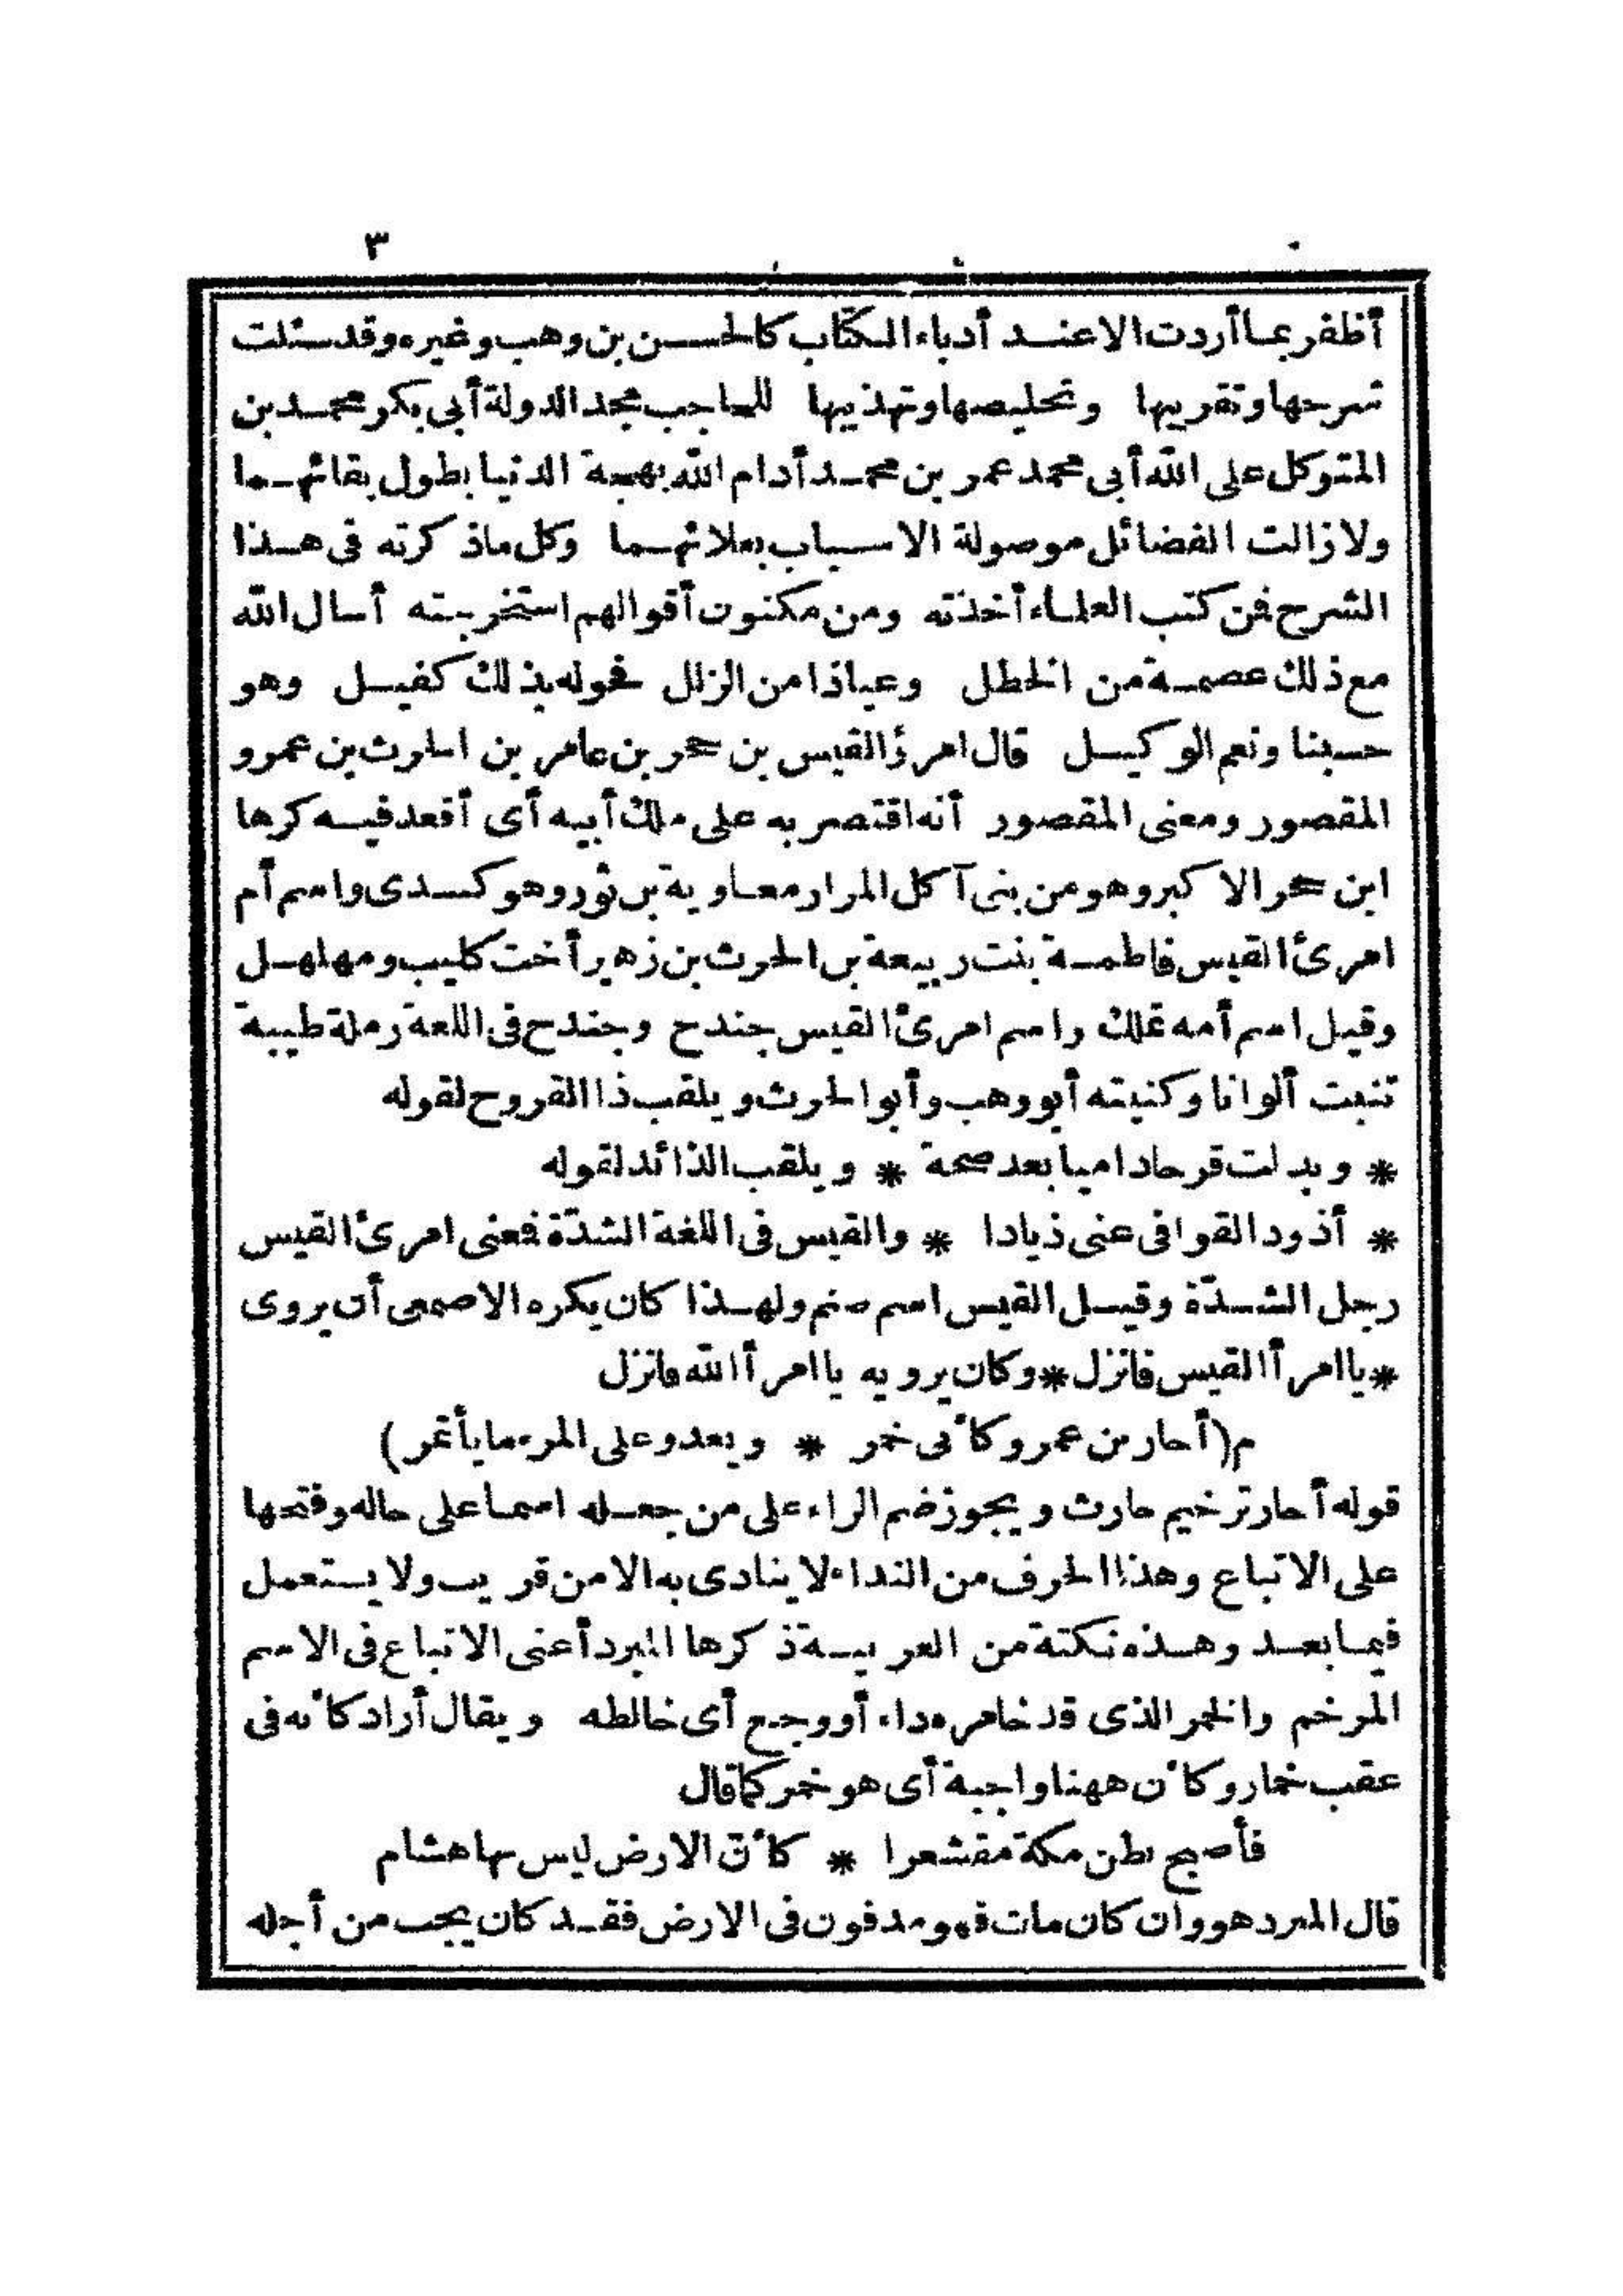 ٣
أظفر بما أردت الا عند أدباء الكتّاب كالحسن بن وهب وغيره وقد سئلت
شرحها وتقريبها وتخليصها وتهذيبها للحاجب مجد الدولة أبى بكر محمد بن
المتوكل على الله أبى محمد عمر بن محمد أدام الله بهجة الدنيا بطول بقائهما
ولا زالت الفضائل موصولة الاسباب بعلائهما وكل ما ذكرته فى هذا
الشرح فمن كتب العلماء أخذته ومن مكنون أقوالهم استخرجته أسال الله
مع ذلك عصمة من الخطل وعياذا من الزلل فحوله بذلك كفيل وهو
حسبنا ونعم الوكيل قال امرؤ القيس بن حجر بن عامر بن الحرث بن عمرو
المقصور ومعنى المقصور أنه اقتصر به على ملك أبيه أى أقعد فيه كرها
ابن حجر الاكبر وهو من بنى آكل المرار معاوية بن ثور وهو كندى واسم أم
امرئ القيس فاطمة بنت ربيعة بن الحرث بن زهير أخت كليب ومهلهل
وقيل اسم أمه تملك واسم امرئ القيس جندح وجندح فى اللغة رملة طيبة
تنبت ألوانا وكنيته أبو وهب وأبو الحرث ويلقب ذا القروح لقوله
* وبدلت قرحا داميا بعد صحة * ويلقب الذائد لقوله
* أذود القوافى عنى ذيادا * والقيس فى اللغة الشدّة فعنى امرئ القيس
رجل الشدّة وقيل القيس اسم صنم ولهذا كان يكره الاصمعى أن يروى
* يا امرأ القيس فانزل * وكان يرويه يا امرأ الله فانزل
م (أحار بن عمرو كأنى خمر * ويعدو على المرء ما يأتمر)
قوله أحار ترخيم حارث ويجوز ضم الراء على من جعله اسما على حاله وفتحها
على الاتباع وهذا الحرف من النداء لا ينادى به الا من قريب ولا يستعمل
فيما بعد وهذه نكتة من العربية ذكرها المبرد أعنى الاتباع فى الاسم
المرخم والخمر الذى قد خامره داء أو وجع أى خالطه ويقال أراد كأنه فى
عقب خمار وكأن ههنا واجبة أى هو خمر كما قال
فأصبح بطن مكة مقشعرا * كأنّ الارض ليس بها هشام
قال المبرد هو وان كان مات فهو مدفون فى الارض فقد كان يجب من أجله